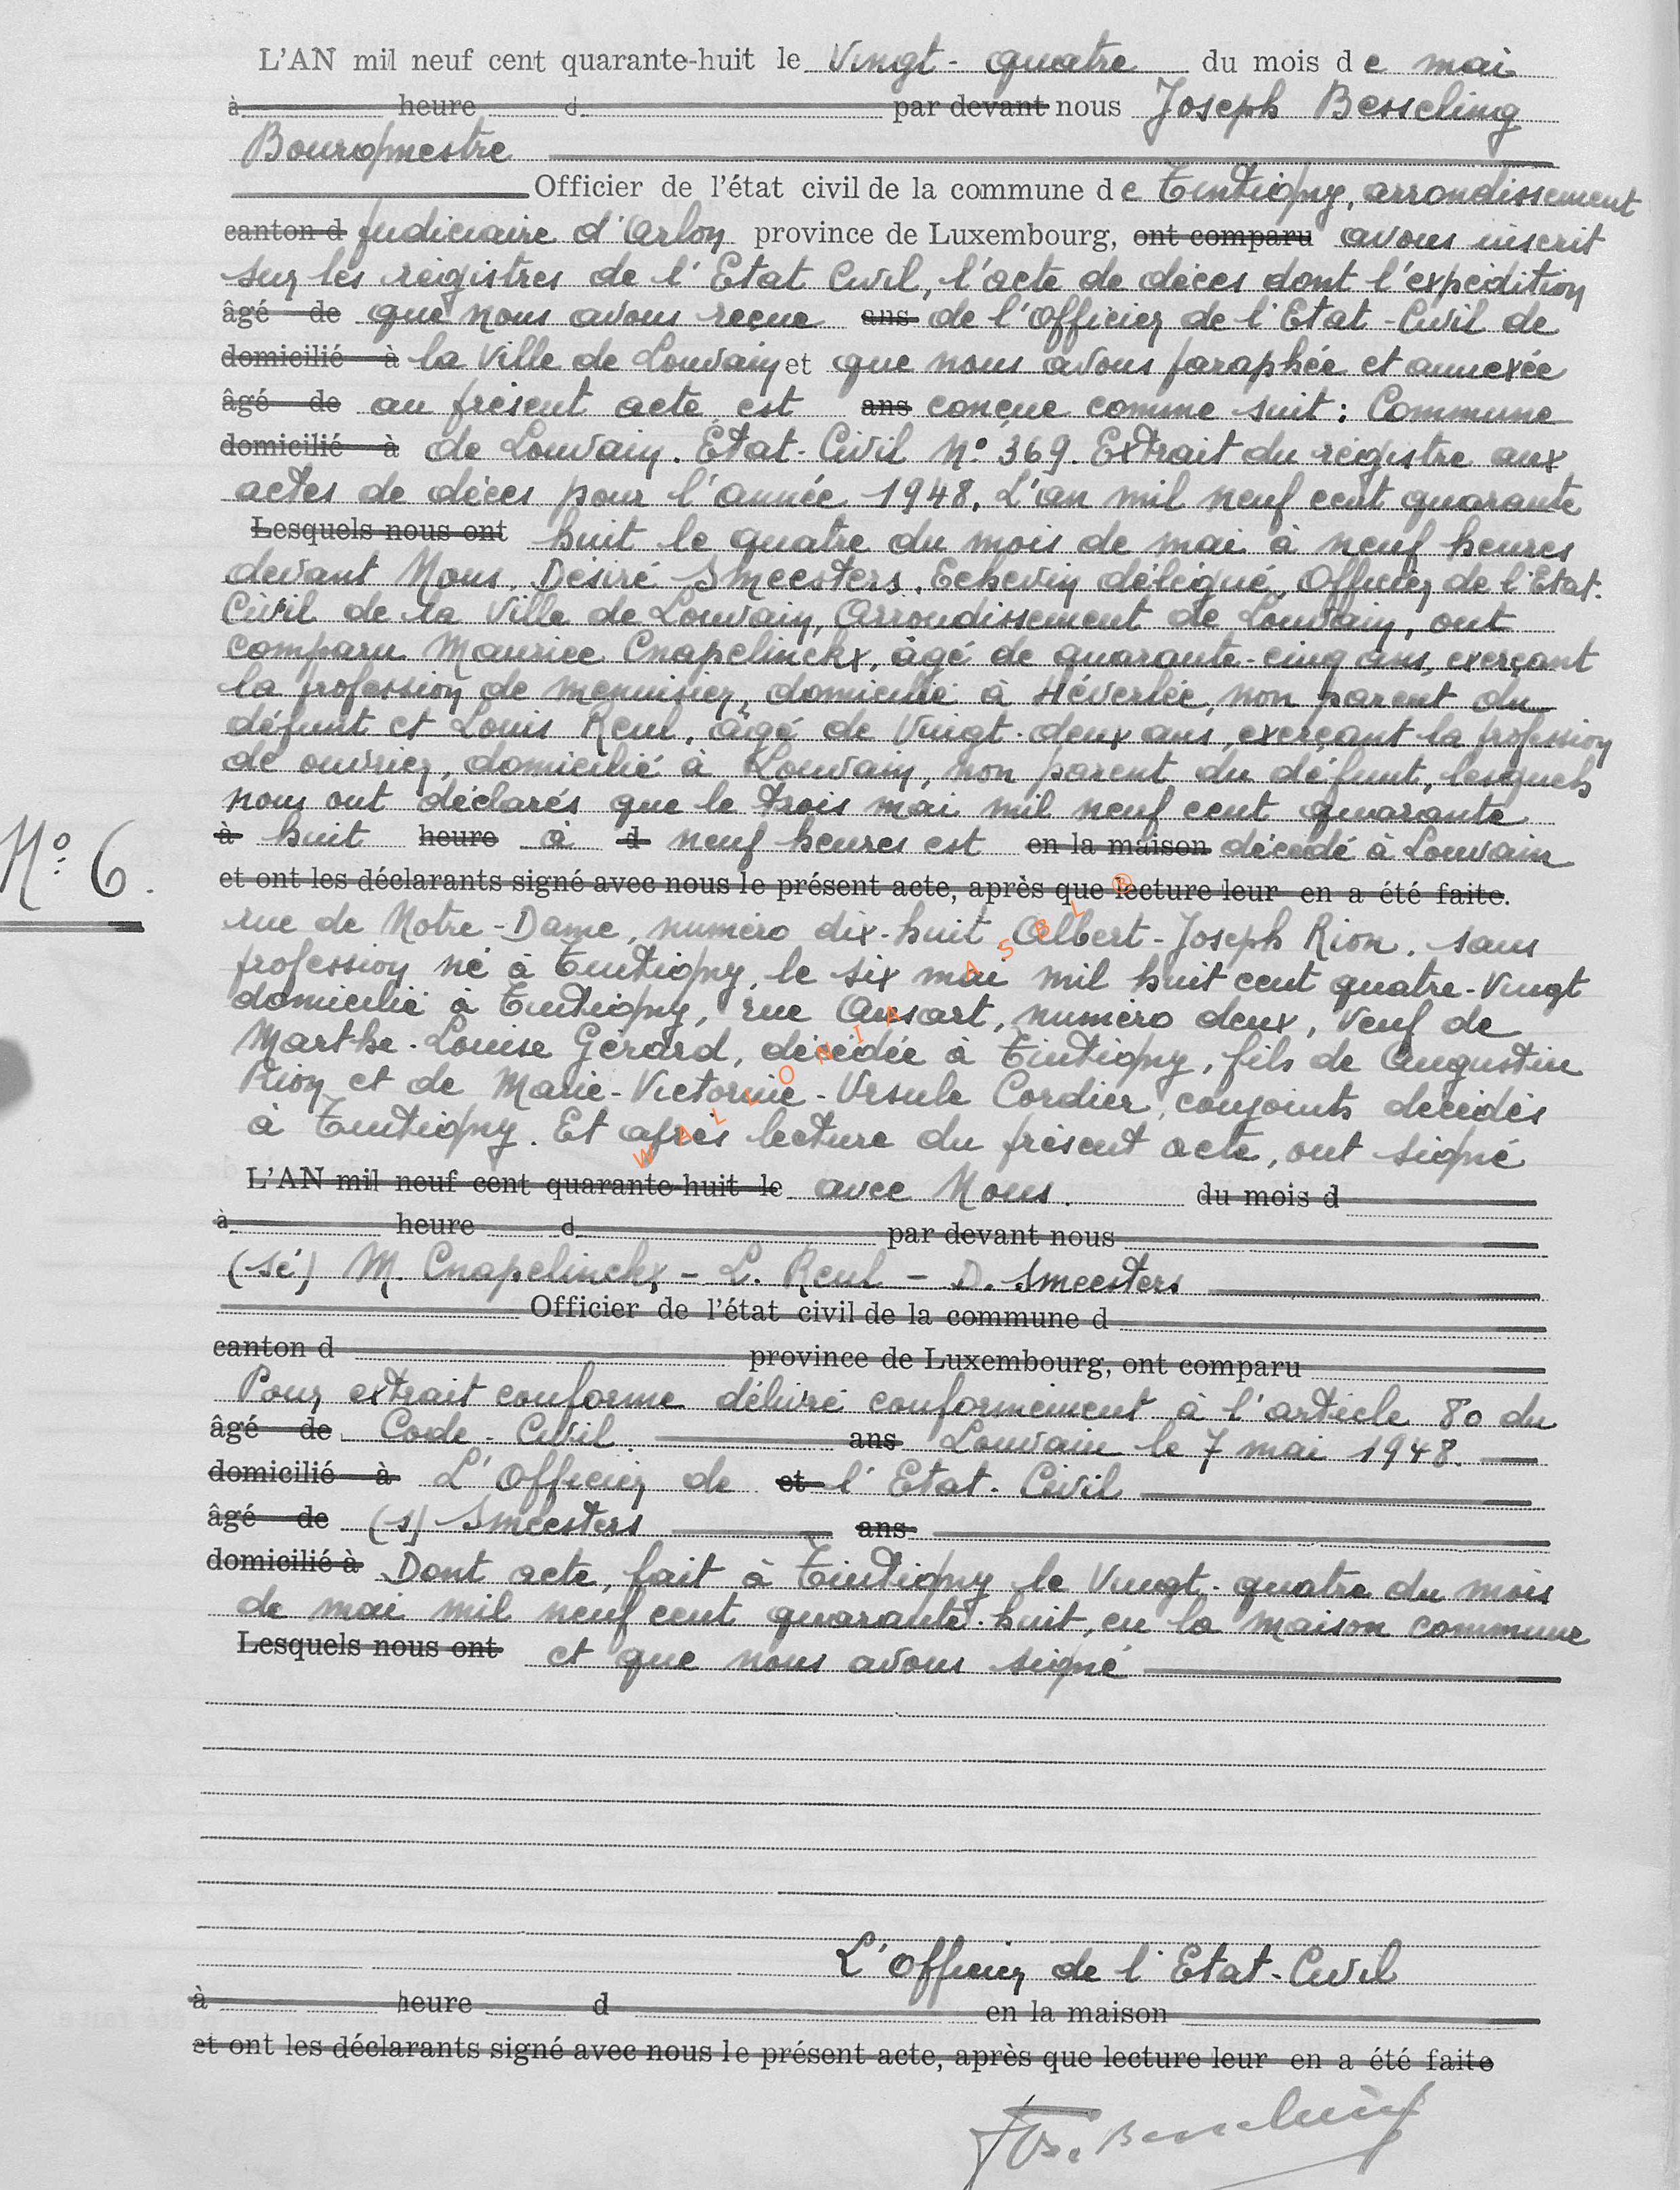 L'AN mil neuf cent quarante-huit le Vingt-quatre du mois de mai
à heure d par devant nous Joseph Besseling
Bourgmestre
Officier de l'état civil de la commune de Tintigny, arrondissement
canton d judiciaire d'Arlon province de Luxembourg, ont comparu avons inscrit
sur les régistres de l'Etat Civil, l'acte de décès dont l'expédition
âgé de que nous avons reçue ans de l'Officier de l'Etat-Civil de
domicilié à la Ville de Louvain et que nous avons paraphée et annexée
âgé de au présent acte est ans conçue comme suit : Commune
domicilié à de Louvain. Etat-Civil N° 369. Extrait du régistre aux
actes de décès pour l'année 1948. L'an mil neuf cent quarante
Lesquels nous ont huit le quatre du mois de mai à neuf heures
devant Nous, Désiré Smeesters, Echevin délégué, Officier de l'Etat-
Civil de la Ville de Louvain, Arrondissement de Louvain, ont
comparu Maurice Cnapelinckx, âgé de quarante-cinq ans, exerçant
la profession de menuisier, domicilié à Héverlée, non parent du
défunt et Louis Reul, âgé de Vingt-deux ans, exerçant la profession
de ouvrier, domicilié à Louvain, non parent du défunt, lesquels
nous ont déclarés que le trois mai mil neuf cent quarante
à huit heure à d neuf heures est en la maison décédé à Louvain
N° 6.
et ont les déclarants signé avec nous le présent acte, après que lecture leur en a été faite.
rue de Notre-Dame, numéro dix-huit Albert-Joseph Rion, sans
profession né à Tintigny, le six mai mil huit cent quatre-Vingt
domicilié à Tintigny, rue Ansart, numéro deux, Veuf de
Marthe-Louise Gérard, décédée à Tintigny, fils de Augustin
Rion et de Marie-Victorine-Ursule Cordier, conjoints décédés
à Tintigny. Et après lecture du présent acte, ont signé
L'AN mil neuf cent quarante-huit le avec Nous. du mois d
à heure d par devant nous
(sé) M. Cnapelinckx - L. Reul - D. Smeesters
Officier de l'état civil de la commune d
canton d province de Luxembourg, ont comparu
Pour extrait conforme délivré conformément à l'article 80 du
âgé de Code-Civil. ans Louvain le 7 mai 1948.
domicilié à L'Officier de et l'Etat-Civil
âgé de (s) Smeesters ans
domicilié à Dont acte, fait à Tintigny le Vingt-quatre du mois
de mai mil neuf cent quarante-huit, en la maison commune
Lesquels nous ont et que nous avons signé
L'Officier de l'Etat-Civil
à heure d en la maison
et ont les déclarants signé avec nous le présent acte, après que lecture leur en a été faite
Jos. Besseling
WALLONIA ASBL ®